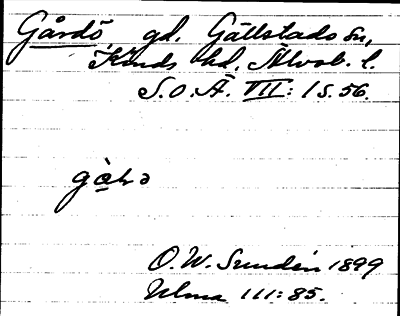 Gårdö gd. Gällstads sn,
Kinds hd. Älvsb. l.
S.O.Ä. VII: 1 S. 56.
O.W. Sundén 1899
Ulma 111:85.